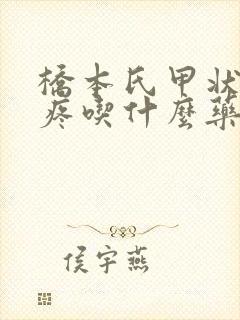 橋本氏甲狀
疼喫什麼藥
侯宇燕